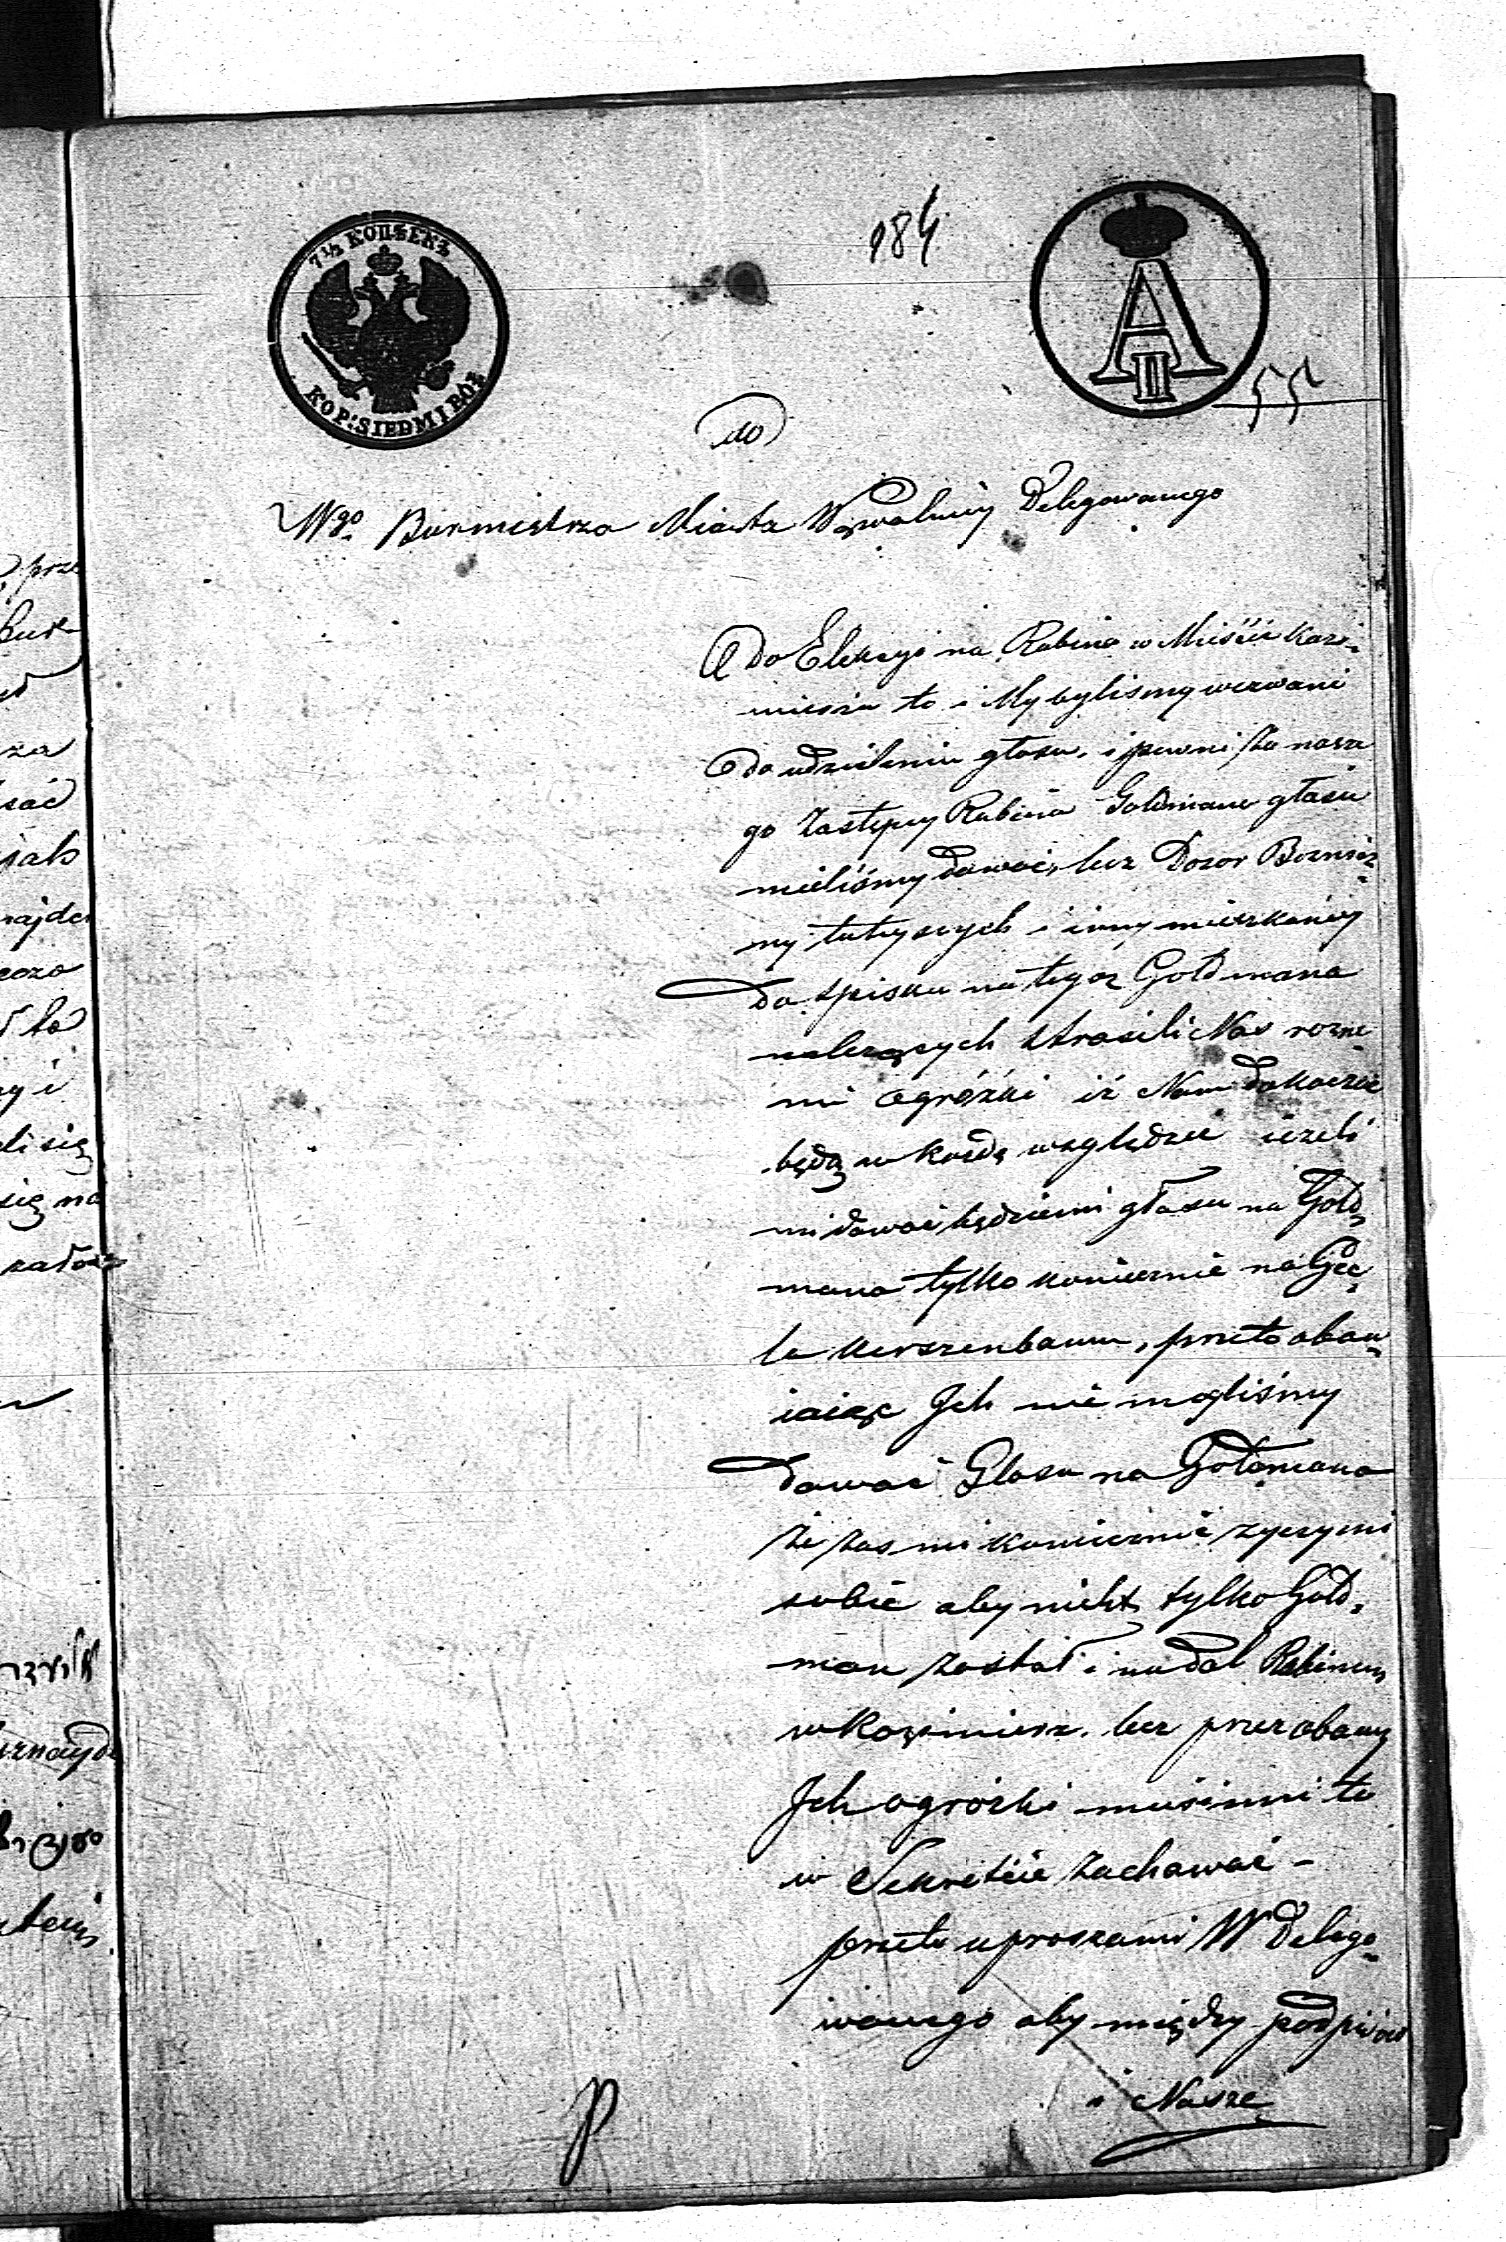 184
7½ КОПѢЕКЪ
KOP: SIEDM I PÓŁ
A II
55
do
Wgo Burmistrza Miasta Wąwolnicy Delegowanego
do Elekcyi na Rabina w Mieście Kazi-
mierzu to i My byliśmy wezwani
do udzielenia głosu, i pewni że nasze
go Zastępcy Rabina Goldmana głasu
mieliśmy dawać, lecz Dozor Boznicz-
ny tutejszych i inny mieszkańcy
Do spisku na tegoż Goldmana
należących straszili Nas rozne-
mi ogróżki iż Nam dokaczać
będą w każdę względzie ieżeli
mi dawać będziemi głosu na Gold-
mana tylko koniecznie na Gec-
la Kerszenbaum, przeto obaw-
iaiąc Jch nie mogliśmy
dawać Glosu na Goldmana
że zas mi koniecznie zyczymi
sobie aby nicht tylko Gold-
man został i nadal Rabinem
w Kazimierz. lecz przez obawy
Jch ogróżki musimmi to
w Sekretcie zachować –
przeto upraszami W Delego-
wanego aby między podpisów
i Nasze